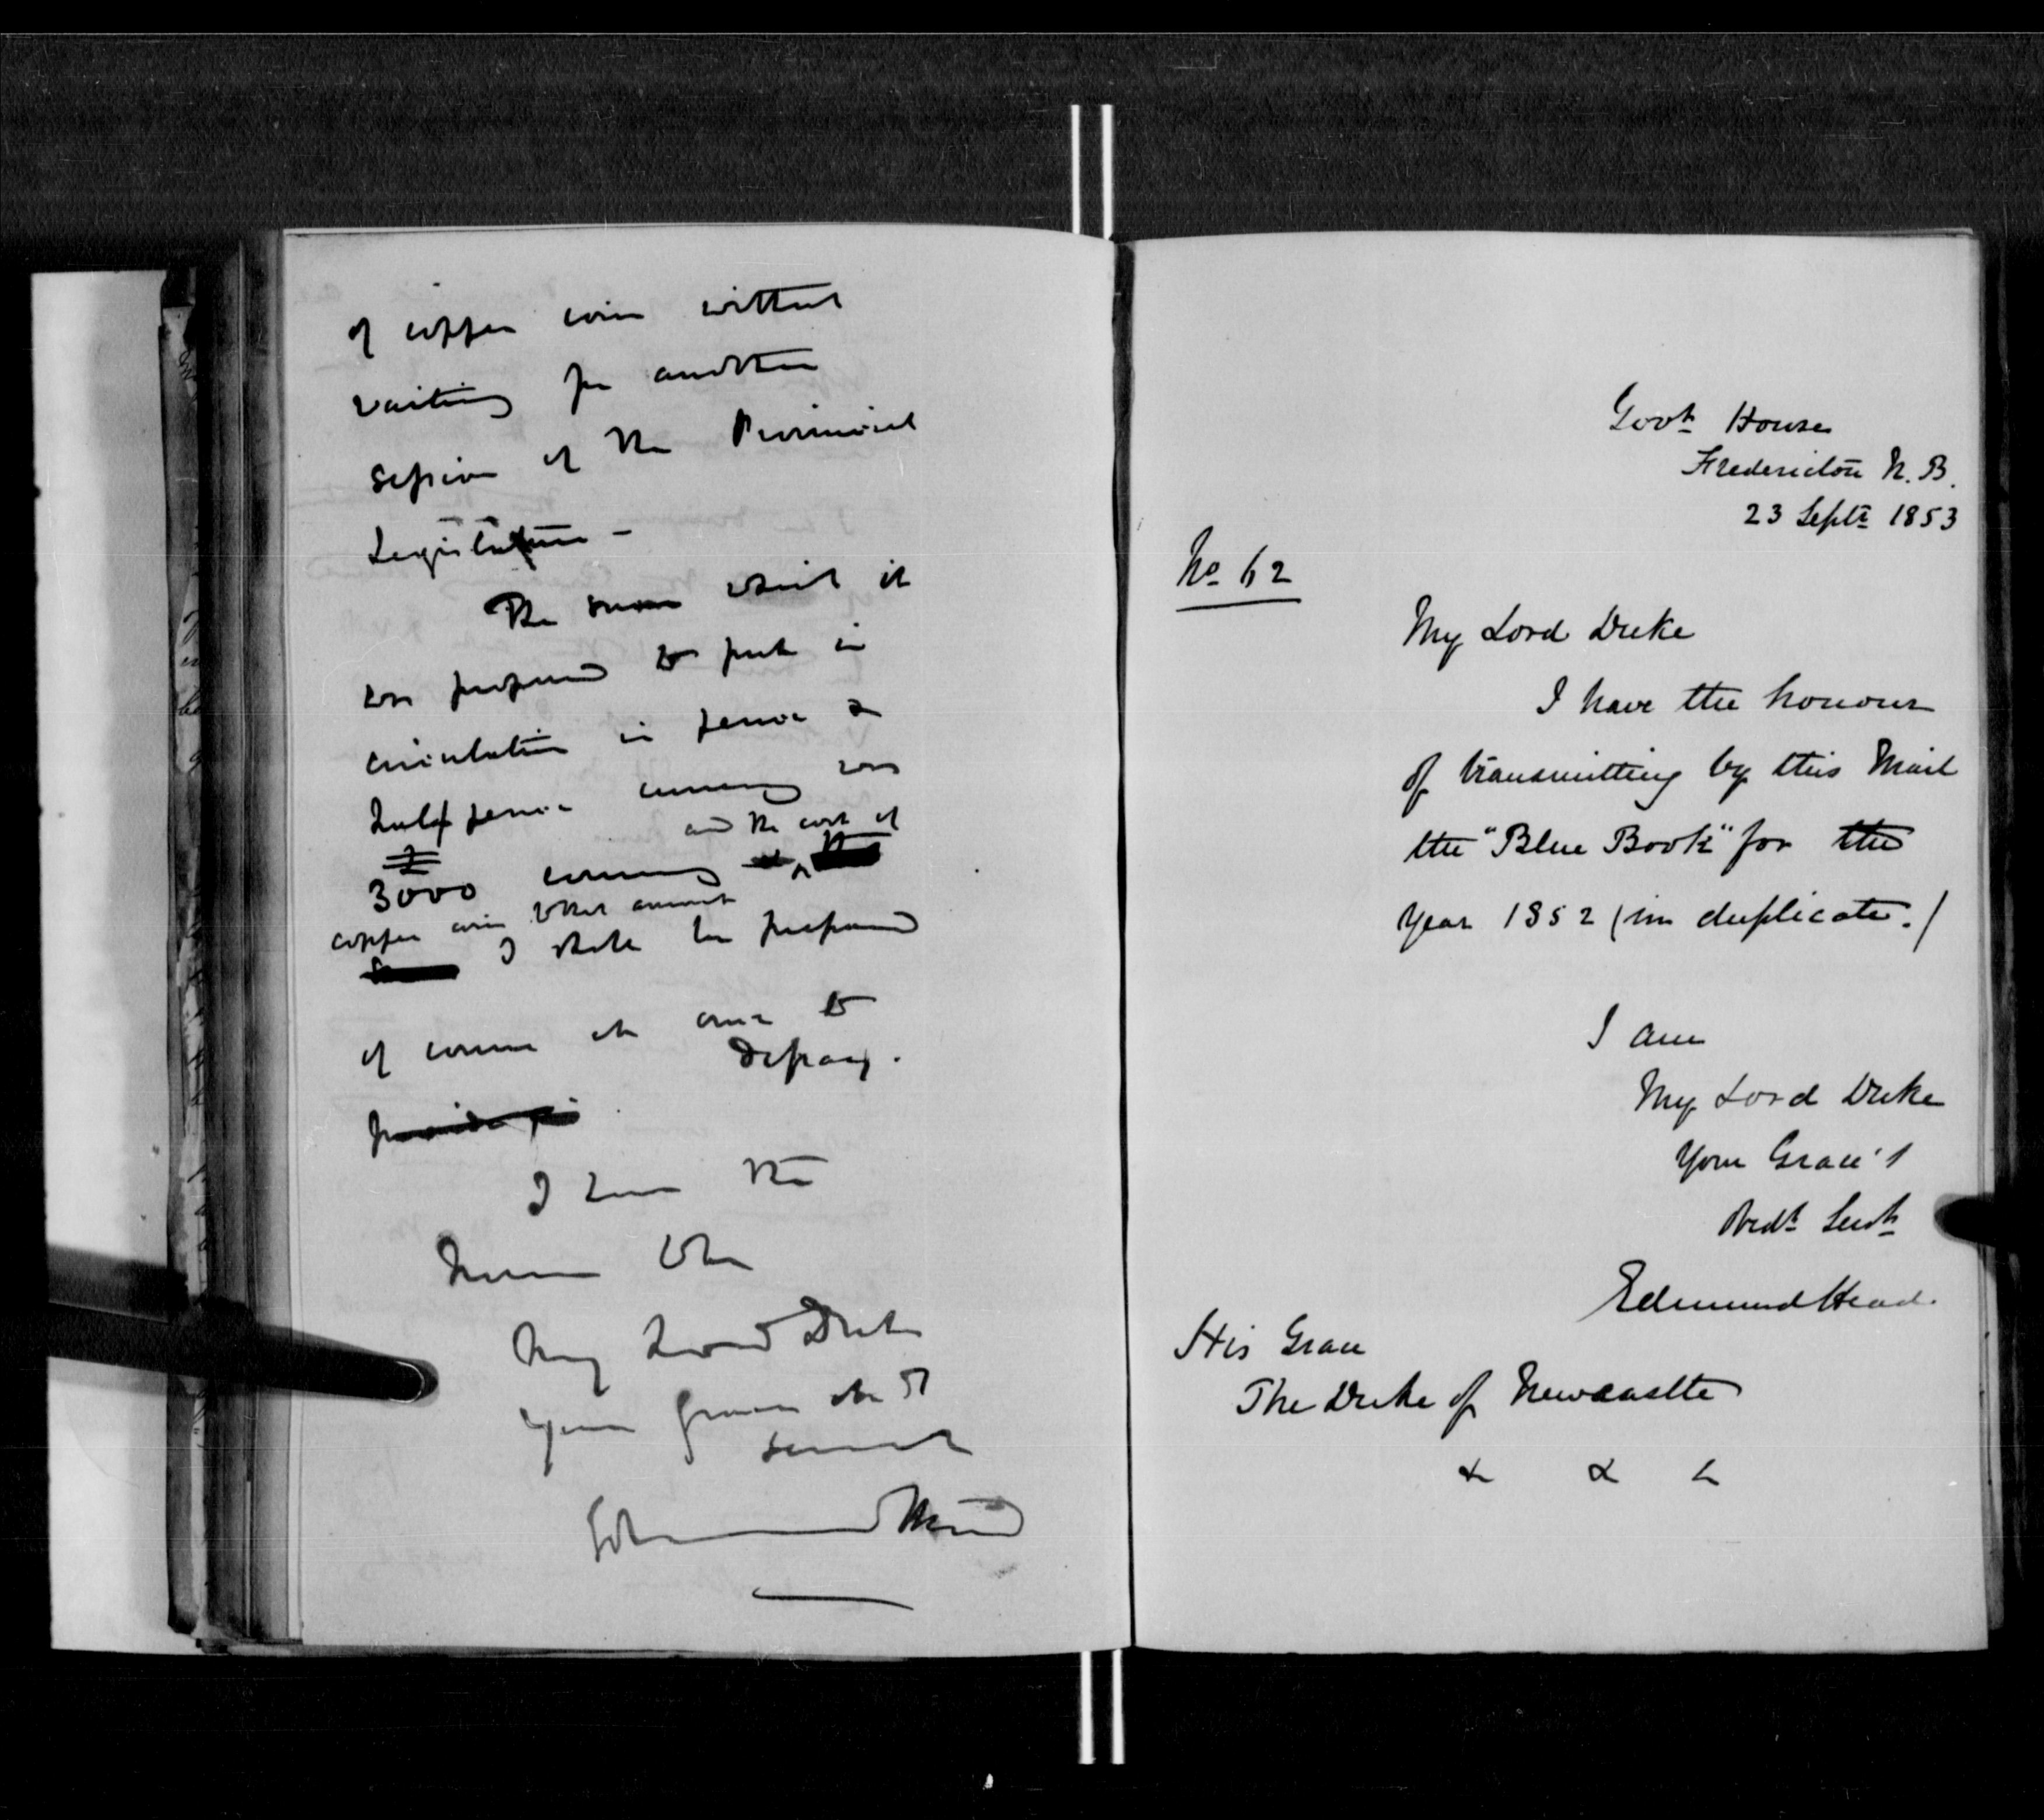 of copper coin without
waiting for another
Session of the Provincial
Legislature –
The sum which it
was proposed to put in
circulation in pence &
half pence currency was
and the cost of
£
3000 currency
copper coin to that amount
I shall be prepared
of course at once to
defray.
provide for
I have the
honor to be
My Lord Duke
Your Grace's obt
servant
Edmund Head
Govt House
Fredericton N.B.
23 Septr 1853
No 62
My Lord Duke
I have the honour
of transmitting by this Mail
the "Blue Book" for the
year 1852 (in duplicate.)
I am
My Lord Duke
Your Grace's
Obedt Servt
Edmund Head.
His Grace
The Duke of Newcastle
& & &